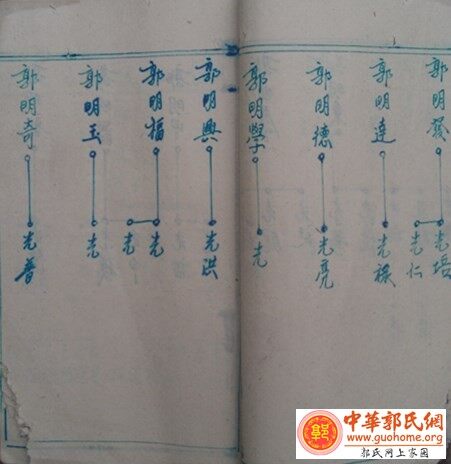 郭明發
光培
光仁
郭明達
光禄
郭明德
光亮
郭明學
光
郭明興
光洪
郭明福
光
光
郭明玉
光
郭明奇
光普
郭
中華郭氏網
www.guohome.org
郭氏网上家园